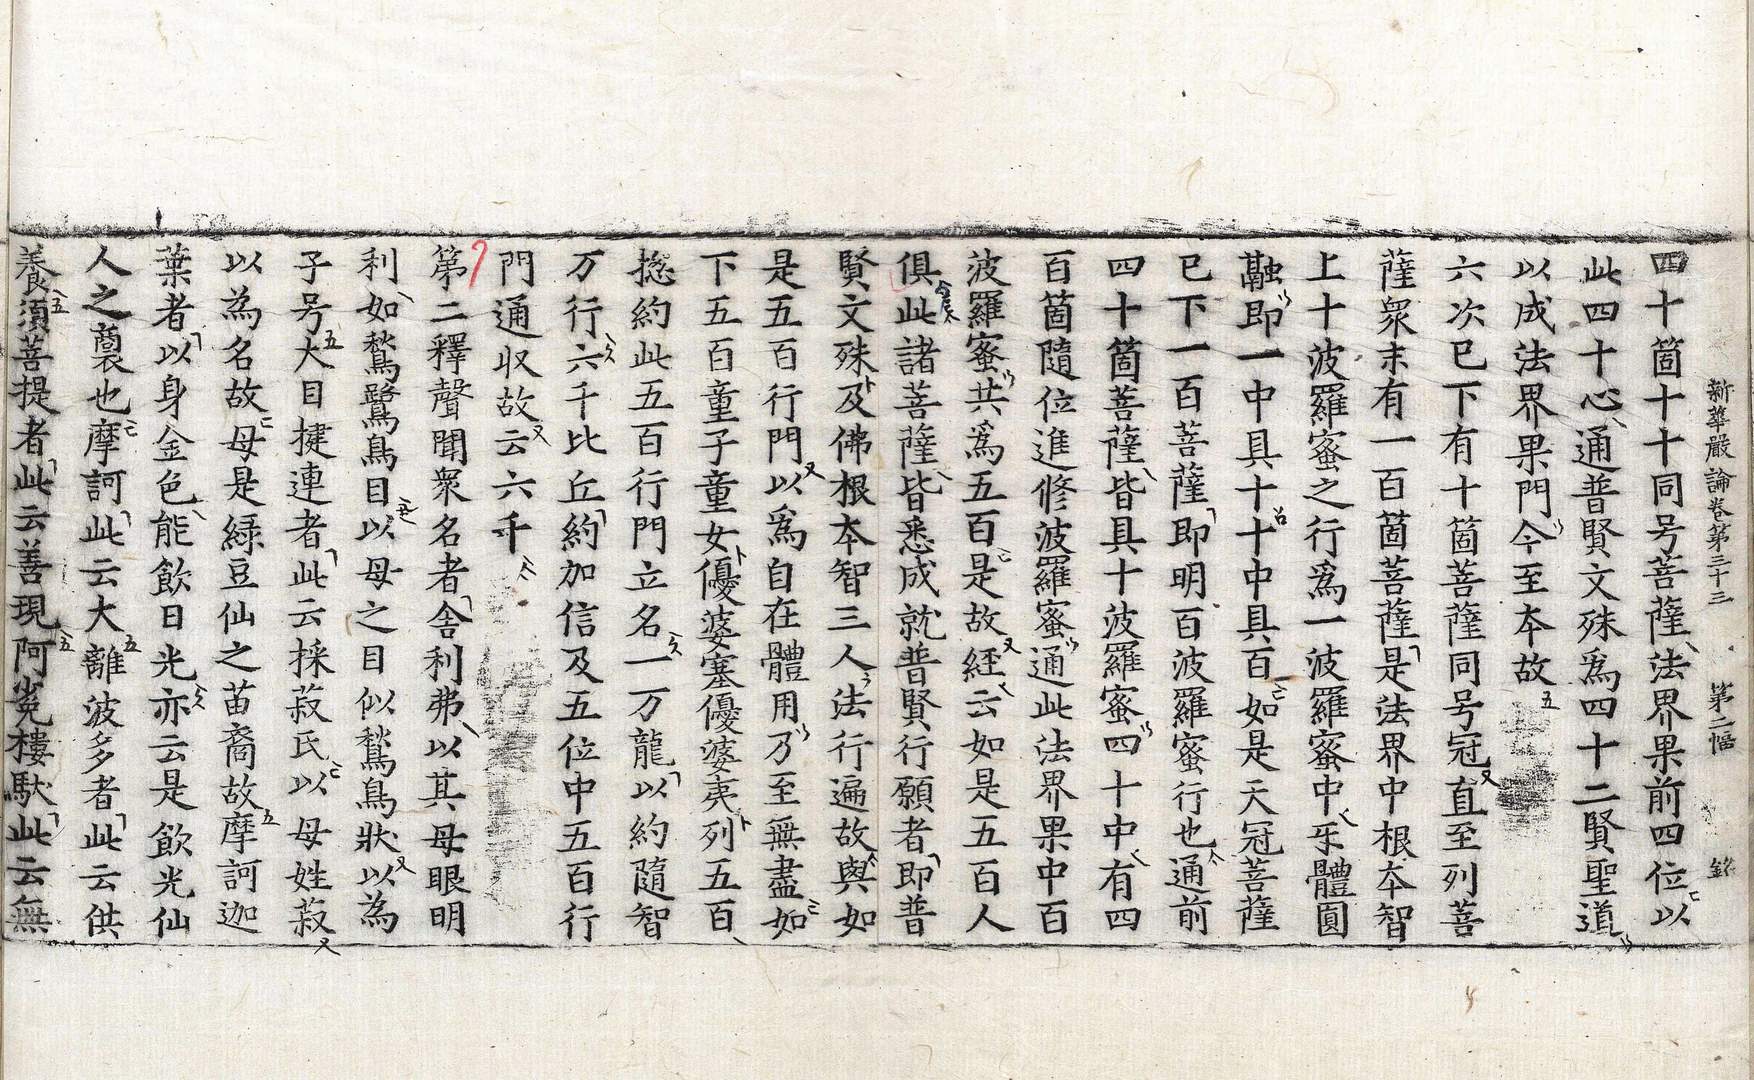 新華嚴論卷第三十三　第二幅　銘
四十箇十十同号菩薩法界果前四位以
此四十心通普賢文殊爲四十二賢聖道
以成法界果門今至本故
六次已下有十箇菩薩同号冠直至列菩
薩衆末有一百箇菩薩是法界中根本智
上十波羅蜜之行爲一波羅蜜中乐體圓
融即一中具十十中具百如是天冠菩薩
已下一百菩薩即明百波羅蜜行也通前
四十箇菩薩皆具十波羅蜜四十中有四
百箇隨位進修波羅蜜通此法界果中百
波羅蜜共爲五百是故経云如是五百人
俱此諸菩薩皆悉成就普賢行願者即普
賢文殊及佛根本智三人法行遍故與如
是五百行門以爲自在體用乃至無盡如
下五百童子童女優婆塞優婆夷列五百
捴約此五百行門立名一万龍以約隨智
万行六千比丘約加信及五位中五百行
門通収故云六千
第二釋聲聞衆名者舎利弗以其母眼明
利如鶖鷺鳥目以母之目似鶖鳥狀以為
子号大目揵連者此云採菽氏以母姓菽
以為名故母是緑豆仙之苗裔故摩訶迦
葉者以身金色能飲日光亦云是飲光仙
人之裔也摩訶此云大離波多者此云供
養湏菩提者此云善現阿㝹樓馱此云無